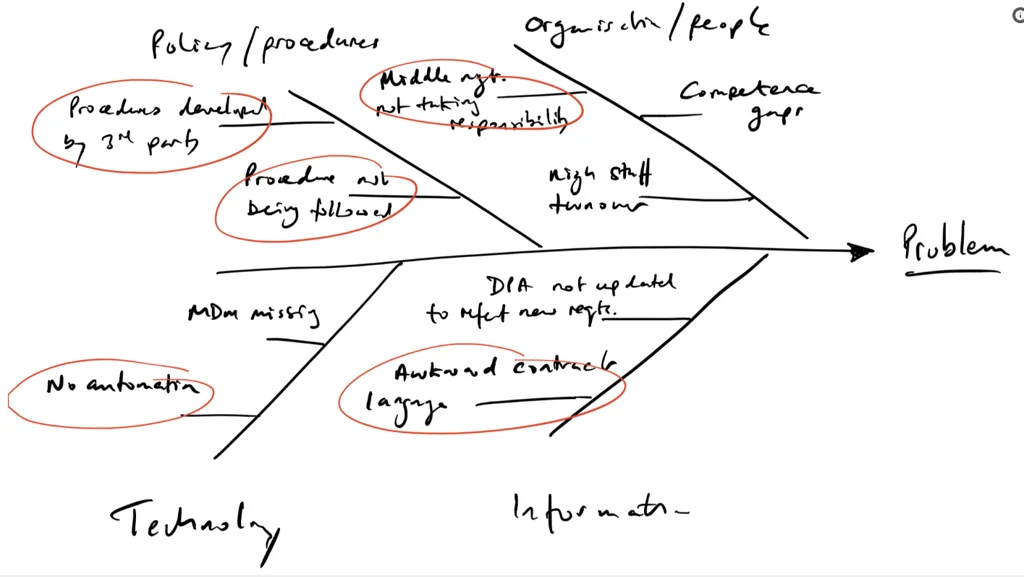 Policy/procedures
Organisation/people
Procedures developed
by 3rd party
Procedure not
being followed
Middle mgt.
not taking
responsibility
Competence
gaps
High staff
turnover
Problem
MDM missing
No automation
DPA not updated
to reflect new reqts.
Awkward contracts
language
Technology
Information